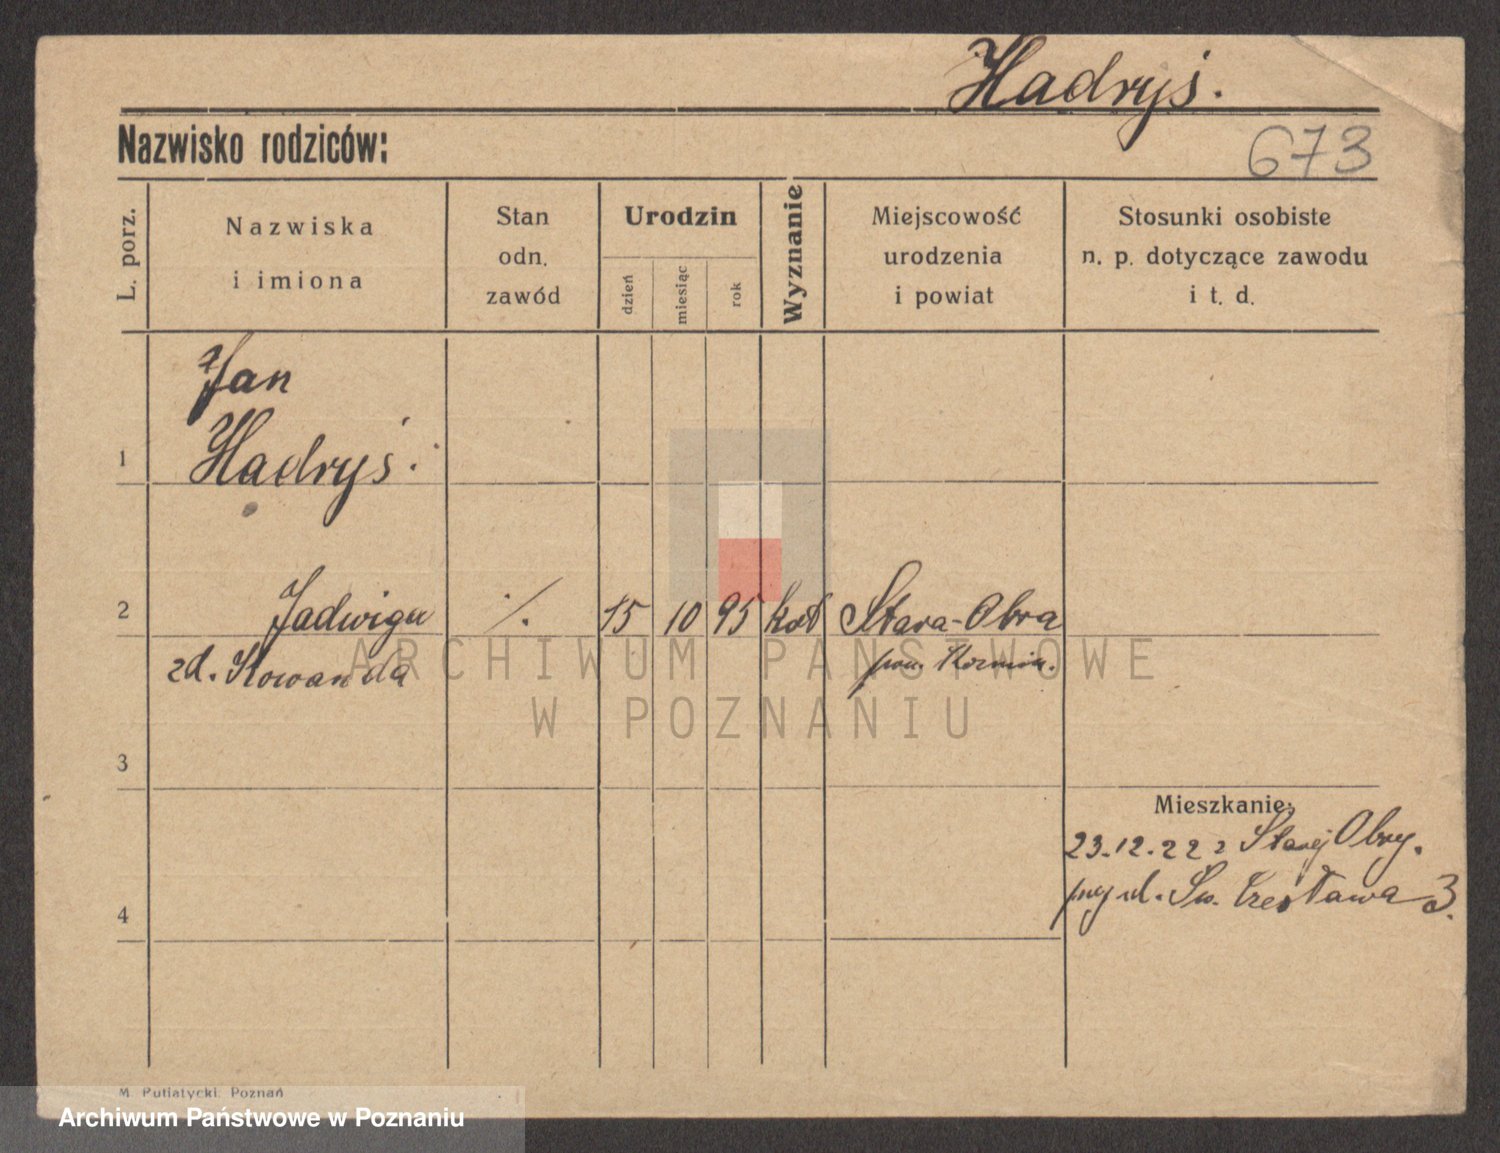 Hadryś.
Nazwisko rodziców:
673
L. porz.
Nazwiska
i imiona
Stan
odn.
zawód
Urodzin
dzień
miesiąc
rok
Wyznanie
Miejscowość
urodzenia
i powiat
Stosunki osobiste
n. p. dotyczące zawodu
i t. d.
Jan
1 Hadryś.
2 Jadwiga ./. 15 10 95 kat Stara-Obra
zd. Kowanda pow. Kozmin.
ARCHIWUM PAŃSTWOWE
W POZNANIU
3
Mieszkanie:
23.12.22 z Starej Obry.
przy ul. Św. Czesława 3.
4
M. Putiatycki, Poznań
Archiwum Państwowe w Poznaniu